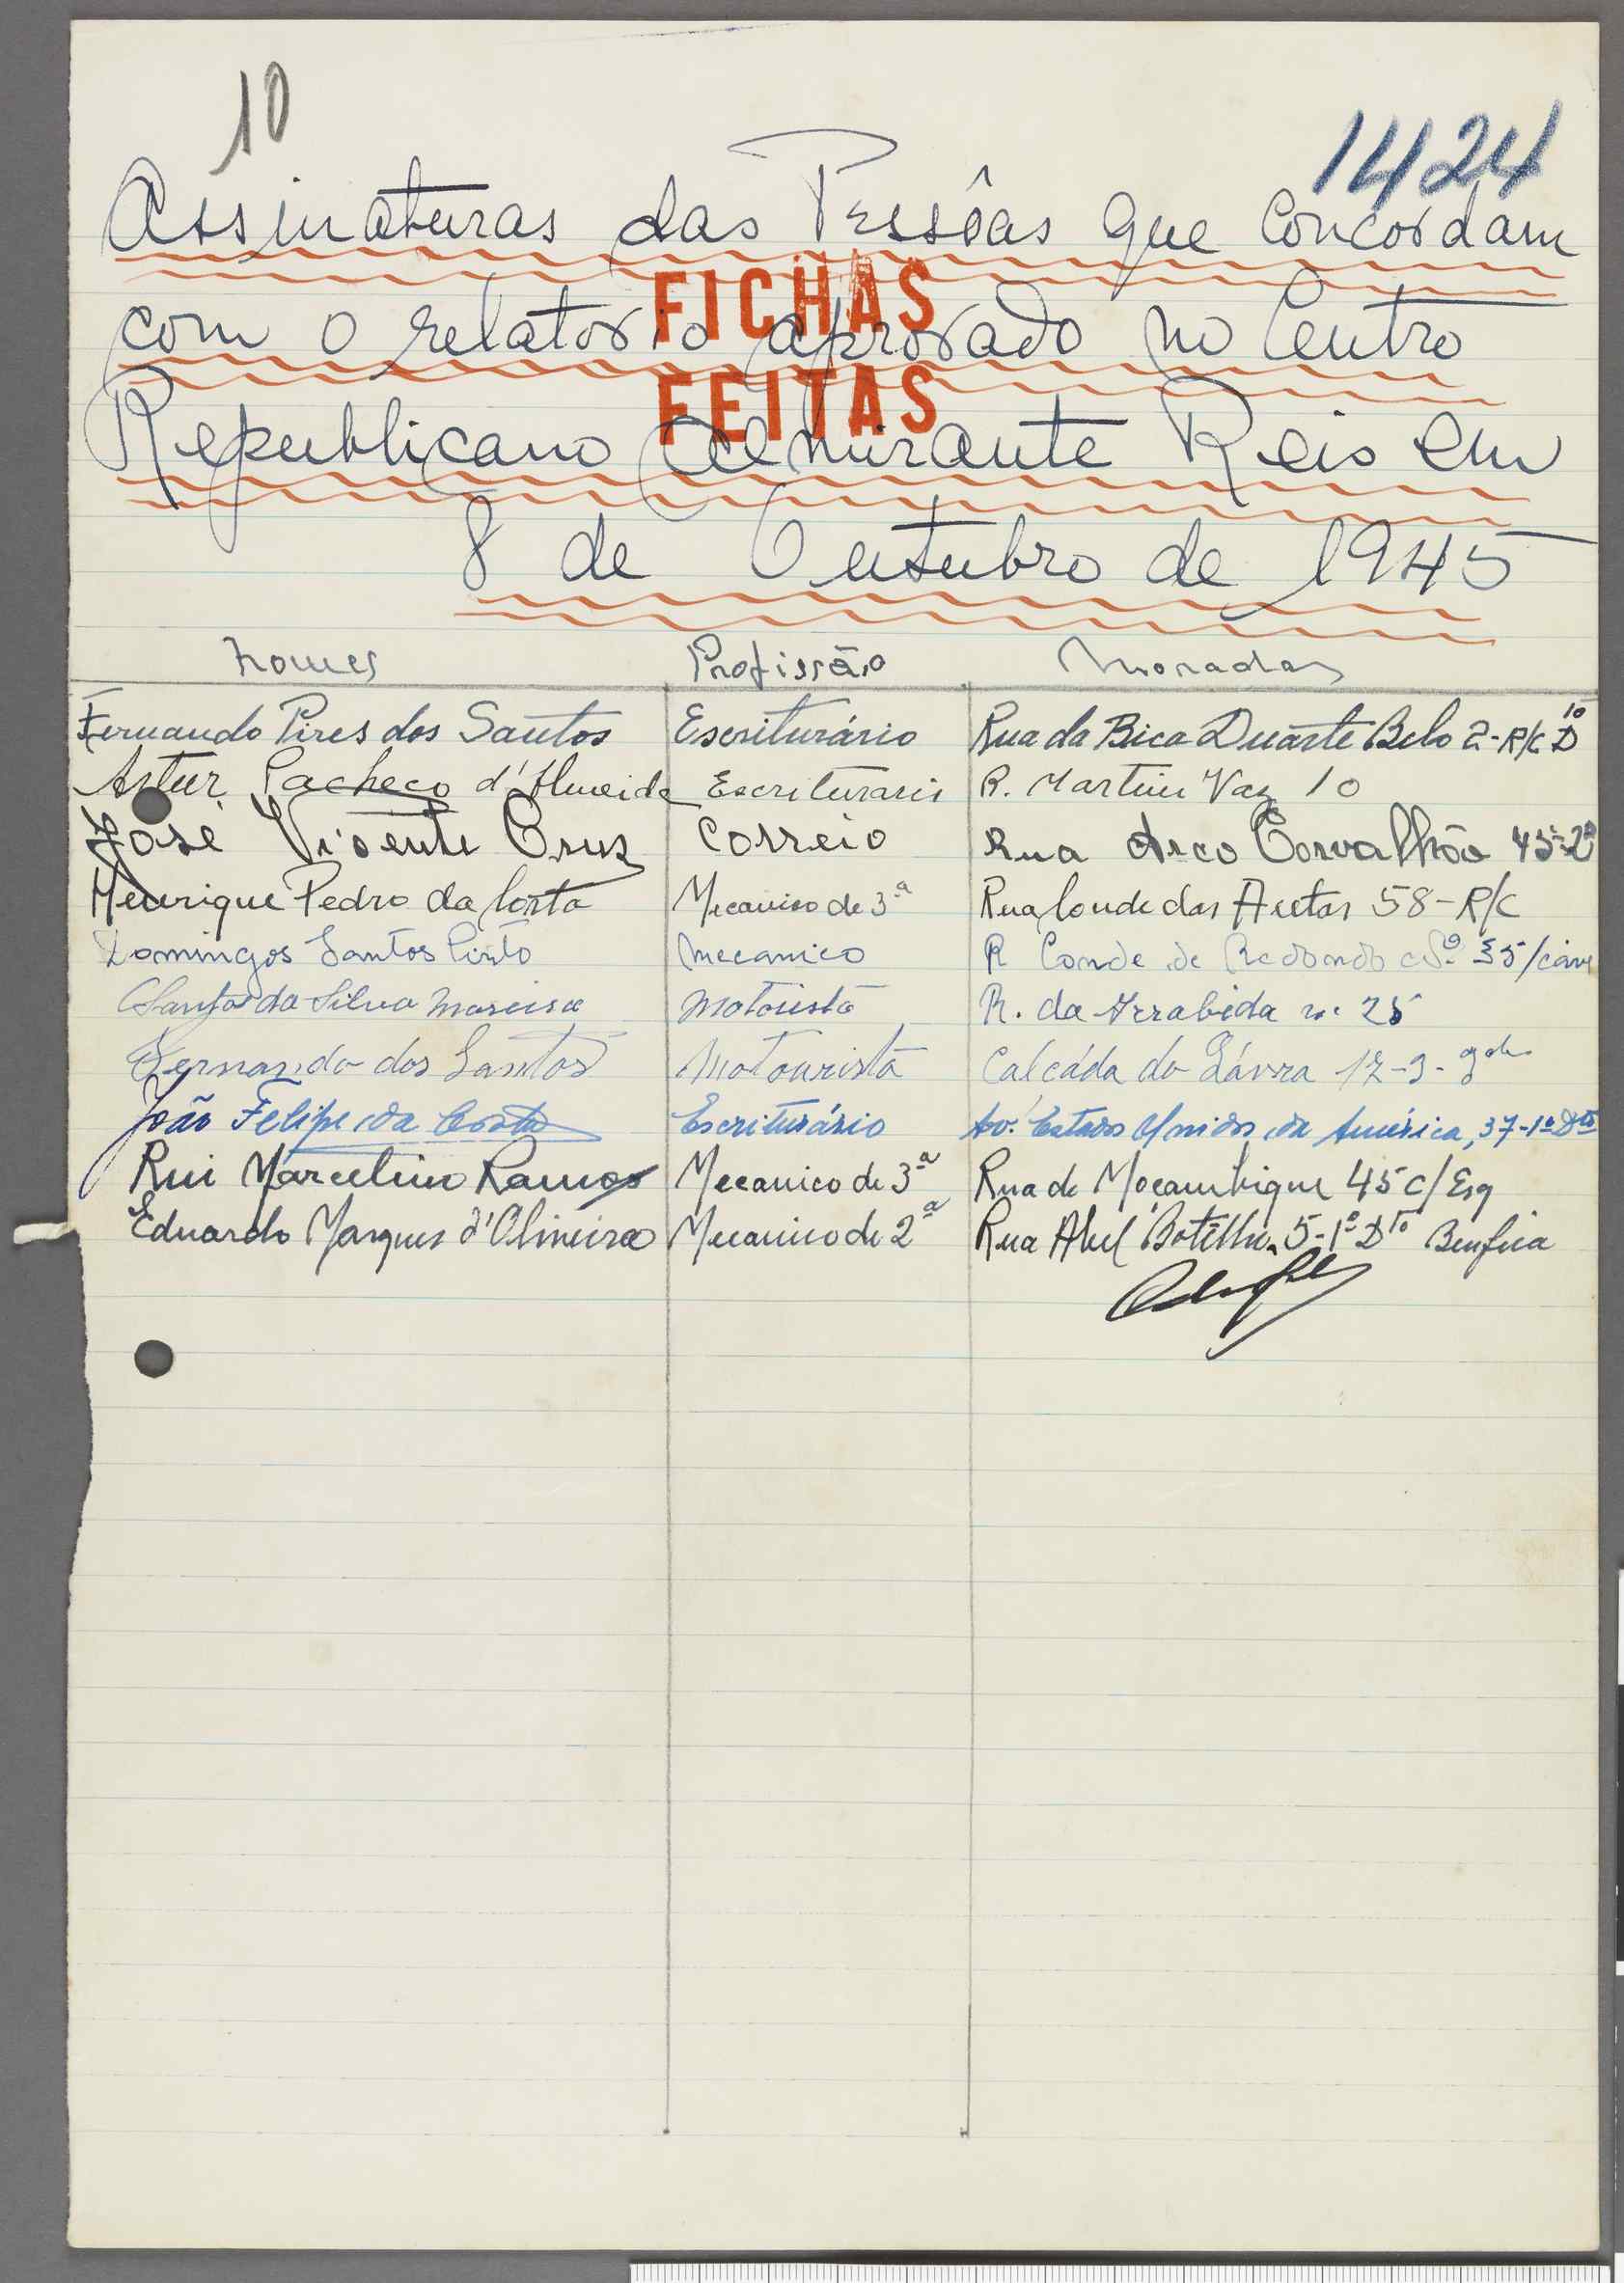 10
1424
Assinaturas das Pessôas que Concordam
com o relatorio aprovado no Centro
FICHAS
Republicano Almirante Reis em
FEITAS
8 de Outubro de 1945
Nomes Profissão Moradas
Fernando Pires dos Santos Escriturário Rua da Bica Duarte Belo 2-R/C D
Artur Pacheco d'Almeida Escriturario R. Martim Vaz 10
José Vicente Cruz Correio Rua Arco Carvalhão 43-2º
Henrique Pedro da Costa Mecanico de 3ª Rua Conde das Antas 58-R/C
Domingos Santos Pinto Mecanico R Conde de Redondo 35/cave
da Silva Moreira Motorista R. da Arrabida n. 25
Fernando dos Santos Motourista Calcáda do Lávra 17-3-
João Felipe da Costa Escriturário Av. Estados Unidos da América, 37-1º Dto
Rui Marcelino Ramos Mecanico de 3ª Rua de Moçambique 45 c/ Esq
Eduardo Marques d'Oliveira Mecanico de 2ª Rua Abel Botelho 5-1º Dto Benfica